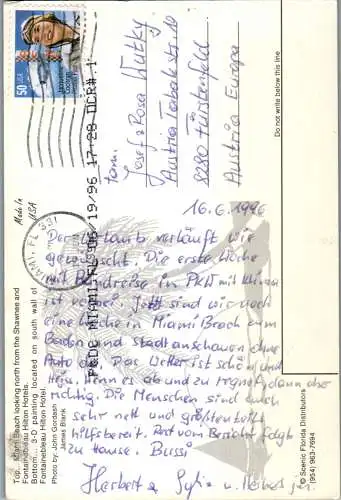 50 USA
Jacqueline Cochran
Pioneer Pilot
MIAMI, FL 331
P&DC MIAMI, FL 06/19/96 17:28 OCR# 1
Fam.
Josef & Rosa Wutky
Austria Tabakstr. 10
8280 Fürstenfeld
Austria Europa
Do not write below this line
Made in USA
Top... Miami Beach looking north from the Shawnee and
Fontainebleau Hilton Hotels.
Bottom... 3-D painting located on south wall of
Fontainebleau Hilton Hotel.
Photo by: John Gorzash
James Blank
© Scenic Florida Distributors
(954) 963-7694
16.6.1996
Der Urlaub verläuft wie
gewünscht. Die erste Woche
mit Rundreise im PKW mit Klima
ist vorbei. Jetzt sind wir noch
eine Woche in Miami Beach zum
Baden und Stadt anschauen ohne
Auto da. Das Wetter ist schön und
heiß. Wenn es ab und zu regnet, dann aber
richtig. Die Menschen sind auch
sehr nett und größtenteils
hilfsbereit. Rest vom Bericht folgt
zu Hause. Bussi
Herbert